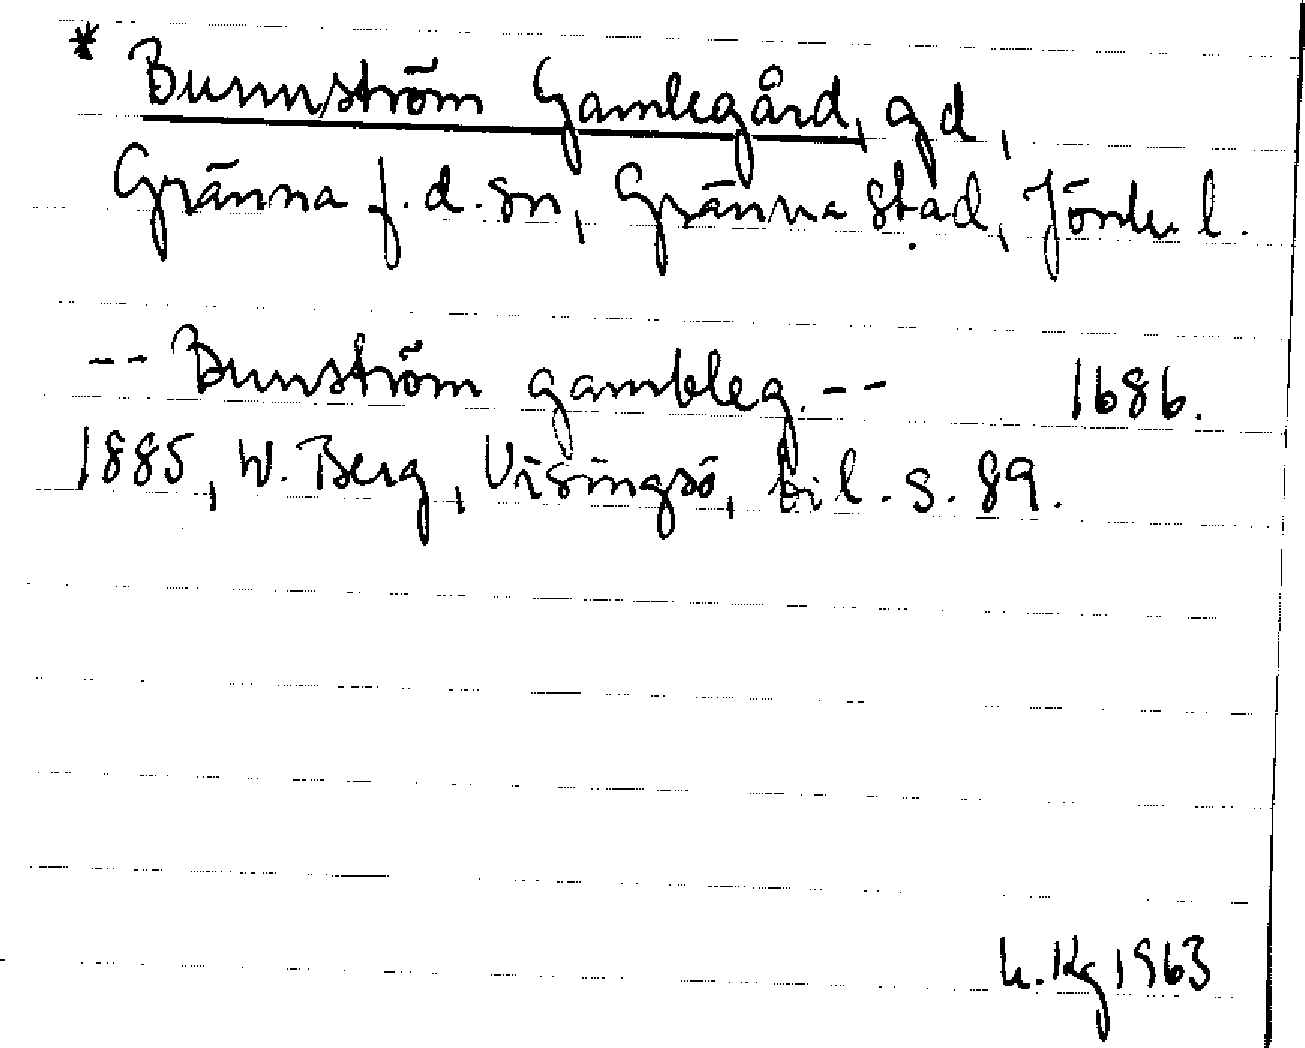 * Bunnström Gamlegård, gd,
Gränna f.d. sn, Gränna stad, Jönk. l.
-- Bunström gambleg. -- 1686.
1885, W. Berg, Visingsö, bil. s. 89.
h. Kg 1963